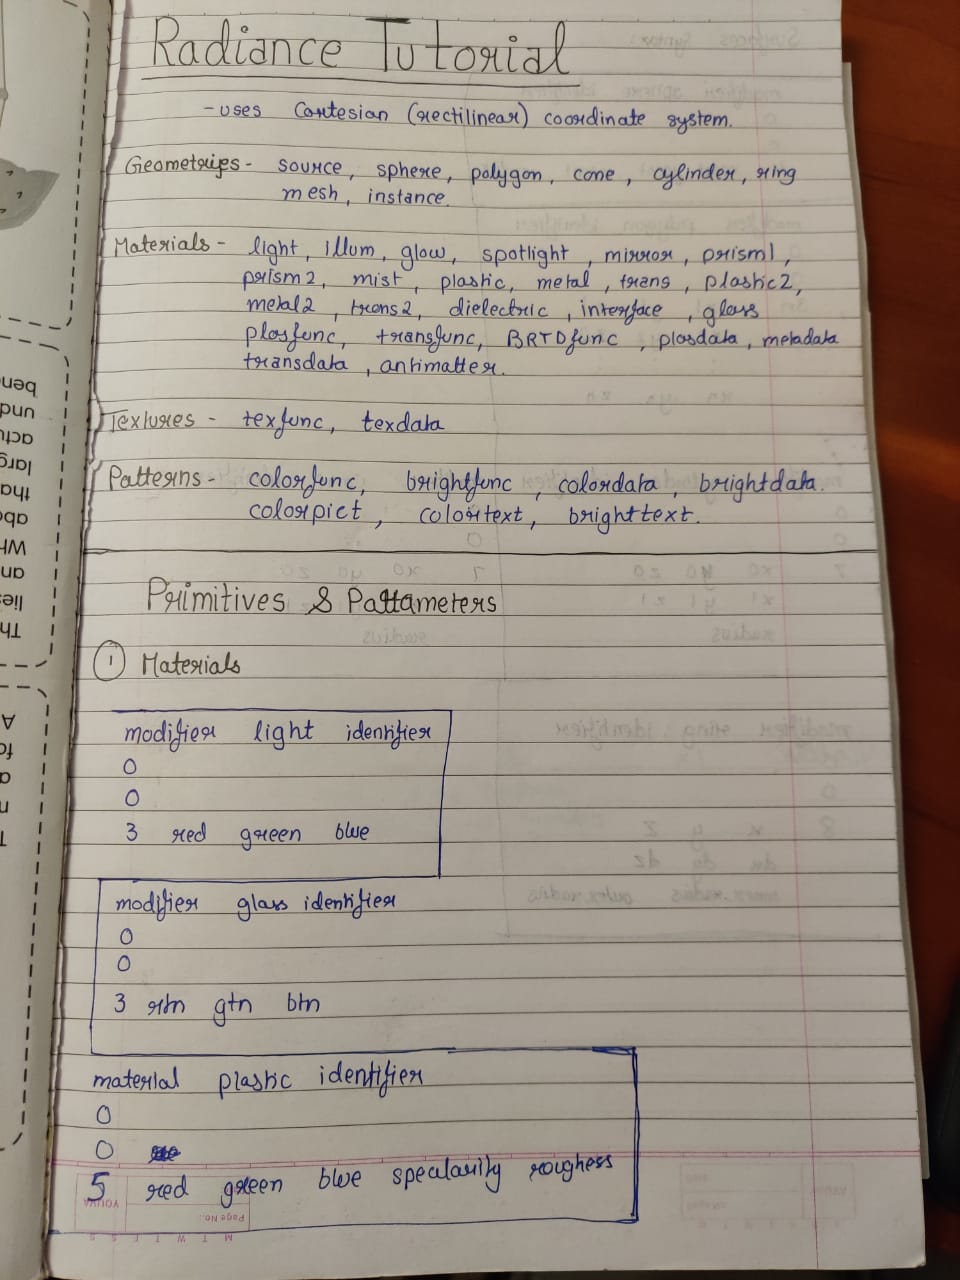 Radiance Tutorial
- uses Cartesian (rectilinear) coordinate system.
Geometries - source, sphere, polygon, cone, cylinder, ring
mesh, instance.
Materials - light, illum, glow, spotlight, mirror, prism1,
prism2, mist, plastic, metal, trans, plastic2,
metal2, trans2, dielectric, interface, glass
plasfunc, transfunc, BRTDfunc, plasdata, metadata
transdata, antimatter.
Textures - texfunc, texdata
Patterns - colorfunc, brightfunc, colordata, brightdata.
colorpict, colortext, brighttext.
Primitives & Parameters
1 Materials
modifier light identifier
0
0
3 red green blue
modifier glass identifier
0
0
3 rtn gtn btn
material plastic identifier
0
0
5 red green blue specularity roughess
YOUVA
Page No.:
M T W T F S S